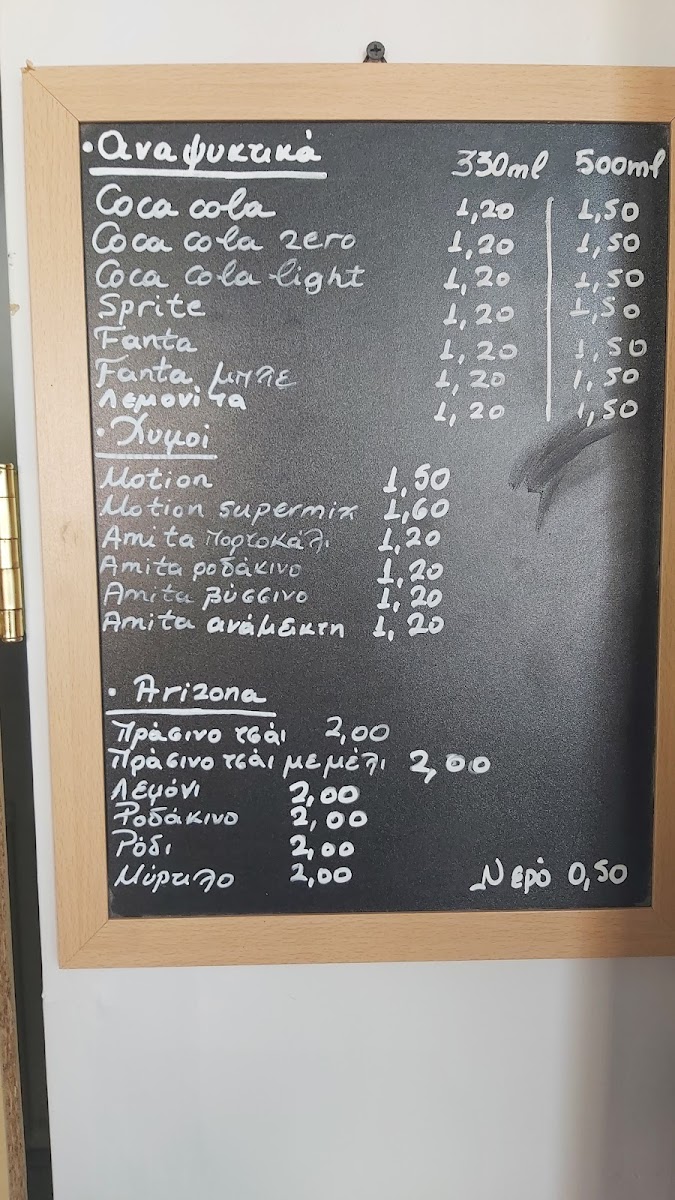 • Αναψυκτικά 330ml 500ml
Coca cola 1,20 1,50
Coca cola zero 1,20 1,50
Coca cola light 1,20 1,50
Sprite 1,20 1,50
Fanta 1,20 1,50
Fanta μπλε 1,20 1,50
Λεμονίτα 1,20 1,50
• Χυμοί
Motion 1,50
Motion supermix 1,60
Amita Πορτοκάλι 1,20
Amita ροδάκινο 1,20
Amita βύσσινο 1,20
Amita ανάμεικτη 1,20
• Arizona
Πράσινο τσάι 2,00
Πράσινο τσάι με μέλι 2,00
Λεμόνι 2,00
Ροδάκινο 2,00
Ρόδι 2,00
Μύρτιλο 2,00 Νερό 0,50